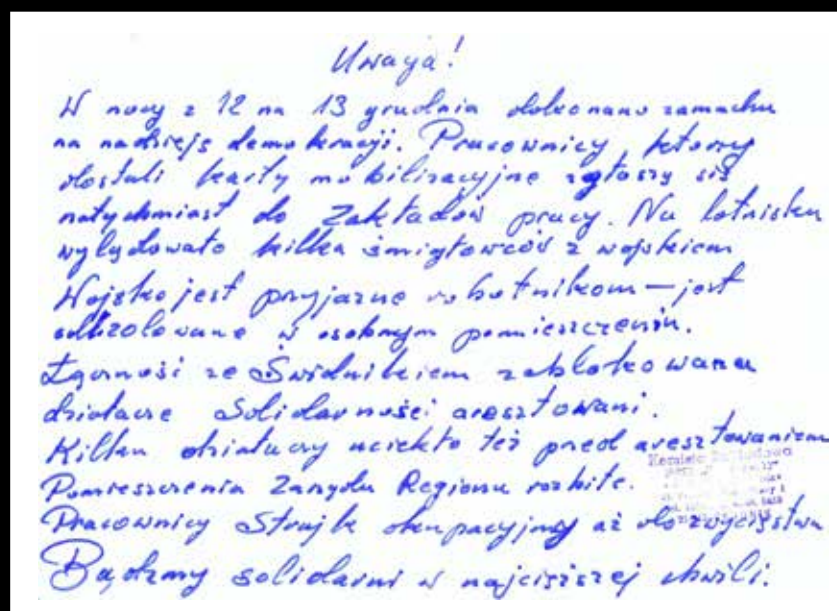 Uwaga!
W nocy z 12 na 13 grudnia dokonano zamachu
na nadzieję demokracji. Pracownicy, którzy
dostali karty mobilizacyjne zgłoszą się
natychmiast do Zakładów pracy. Na lotnisku
wylądowało kilka śmigłowców z wojskiem
Wojsko jest przyjazne robotnikom – jest
odizolowane w osobnym pomieszczeniu.
Łączność ze Świdnikiem zablokowana
działacze Solidarności aresztowani.
Kilku działaczy uciekło też przed aresztowaniem
Pomieszczenia Zarządu Regionu rozbite.
Pracownicy Strajk okupacyjny aż do zwycięstwa
Bądźmy solidarni w najcięższej chwili.